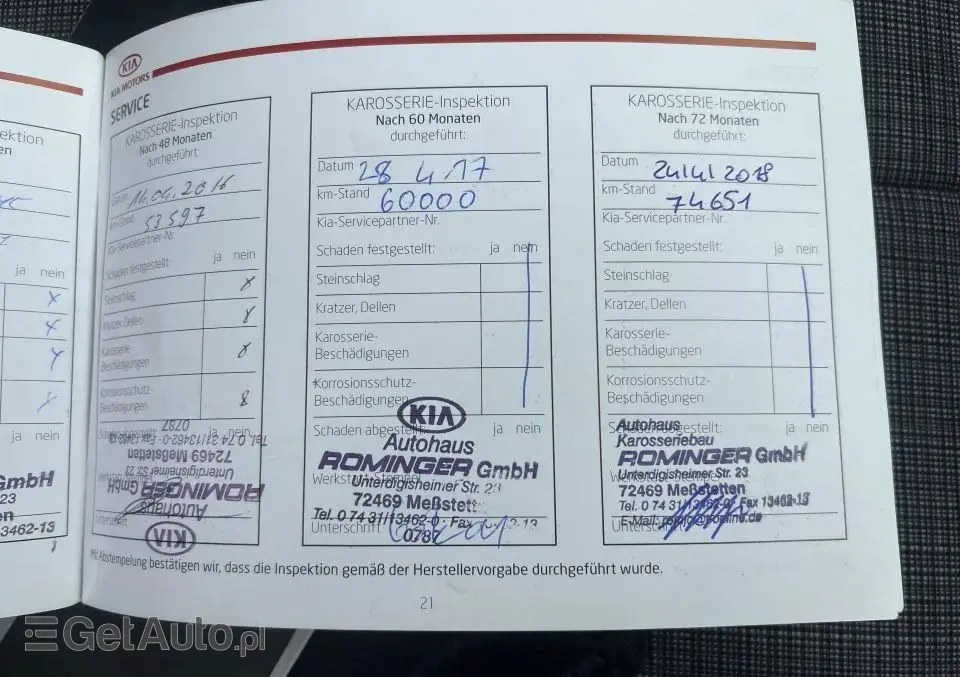 KIA
KIA MOTORS
SERVICE
ektion
en
ja nein
x
x
ja nein
mbH
23
n
3462-13
KAROSSERIE-Inspektion
Nach 48 Monaten
durchgeführt:
Datum 14.04.2016
km-Stand 53597
Kia-Servicepartner-Nr.
Schaden festgestellt: ja nein
Steinschlag x
Kratzer, Dellen
Karosserie-
Beschädigungen
Korrosionsschutz-
Beschädigungen
Schaden abgestellt: ja nein
KIA
Autohaus
ROMINGER GmbH
Unterdigisheimer Str. 23
72469 Meßstetten
Tel. 0 74 31/13462-0 · Fax 13462-13
0787
Unterschrift
KAROSSERIE-Inspektion
Nach 60 Monaten
durchgeführt:
Datum 28 4.17
km-Stand 60000
Kia-Servicepartner-Nr.
Schaden festgestellt: ja nein
Steinschlag
Kratzer, Dellen
Karosserie-
Beschädigungen
Korrosionsschutz-
Beschädigungen
Schaden abgestellt: ja nein
KIA
Autohaus
ROMINGER GmbH
Unterdigisheimer Str. 23
72469 Meßstett
Tel. 0 74 31/13462-0 · Fax 2-13
0787
Unterschrift
KAROSSERIE-Inspektion
Nach 72 Monaten
durchgeführt:
Datum 24/4/2018
km-Stand 74651
Kia-Servicepartner-Nr.
Schaden festgestellt: ja nein
Steinschlag
Kratzer, Dellen
Karosserie-
Beschädigungen
Korrosionsschutz-
Beschädigungen
Schaden abgestellt: ja nein
Autohaus
Karosseriebau
ROMINGER GmbH
Unterdigisheimer Str. 23
72469 Meßstetten
Tel. 0 74 31/13462-0 Fax 13462-13
E-Mail:
Mit Abstempelung bestätigen wir, dass die Inspektion gemäß der Herstellervorgabe durchgeführt wurde.
21
GetAuto.pl